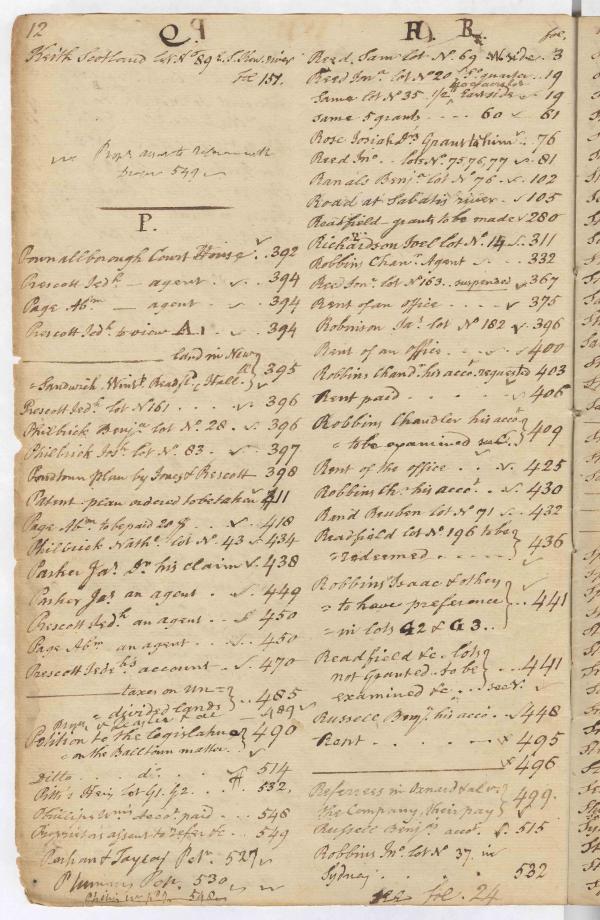 12
Q
Keith Scotland Lot No 89
fol 157.
Prop's assent to refer
549
P.
Pownallborough Court House . 392
Prescott Jedh — agent . 394
Page Abm — agent . 394
Prescott Jedh to view A. 394
land in New
Sandwich Readfd Hall 395
Prescott Jedh lot No 161 . . . 396
Philbrick Benja lot No 28 . 396
Philbrick lot No. 83 . 397
Pondtown plan by Jones & Prescott 398
Patent plan ordered to be taken 411
Page Abm to be paid 20/8 . . . 418
Philbrick Nathl lot No 43 434
Parker Jas Dr his claim 438
Parker Jas an agent . 449
Prescott Jedh an agent . . 450
Page Abm an agent . . . 450
Prescott Jedh's account . . 470
taxes on un=
=divided lands . . 485
489
Petition to the legislature
=on the Balltown matter 490
ditto . . do . . 514
Pitts Heirs lot G1. G2 . . . 532.
accot. paid . . 548
Proprietors assent to refer &c . . 549
Farham & Taylor Petn. 527
Plummer Petn. 530
548
H. R.
foe.
Reed, Sam lot No. 69 W side . 3
Reed Jno. lot No 20 quarter . . 19
Same lot No 35. 1/2 Eastside . 19
Same 5 grants - - - . 60 61
Rose Josiah Dr Grant to him . . 76
Reed Jno. . . lots No. 75 76, 77 . 81
Ranals Benja lot No 76 . 102
Road at Sabatis river . 105
Readfield - grants to be made 280
Richardson Joel Lot No. 14 . 311
Robbins Chanr. Agent . . . 332
Ree Jonn. lot No 163. suspended 367
Rent of an office . - - - 375
Robinson Jas. lot No 182 . 396
Rent of an office . . . 400
Robbins Chandr. his acco. requested 403
Rent paid . . . . . 406
Robbins Chandler his acco
=to be examined 409
Rent of the office . . . 425
Robbins Chr. his acco. . 430
Rand Reuben lot No 71 . . 432
Readfield lot No 196 to be
=redeemed . - - - - 436
Robbins Isaac & others
=to have preference . . 441
=in lots G2 & G3 . .
Readfield &c. lots
not Granted to be . . 441
examined &c . .
Russell Benja. his acco. . 448
Rent . . . . . - 495
496
Referees in
the Company, their pay 499.
Russell Benja acco. . 515
Robbins Jno. Lot No 37. in
Sydney . . . . 532
fol. 24